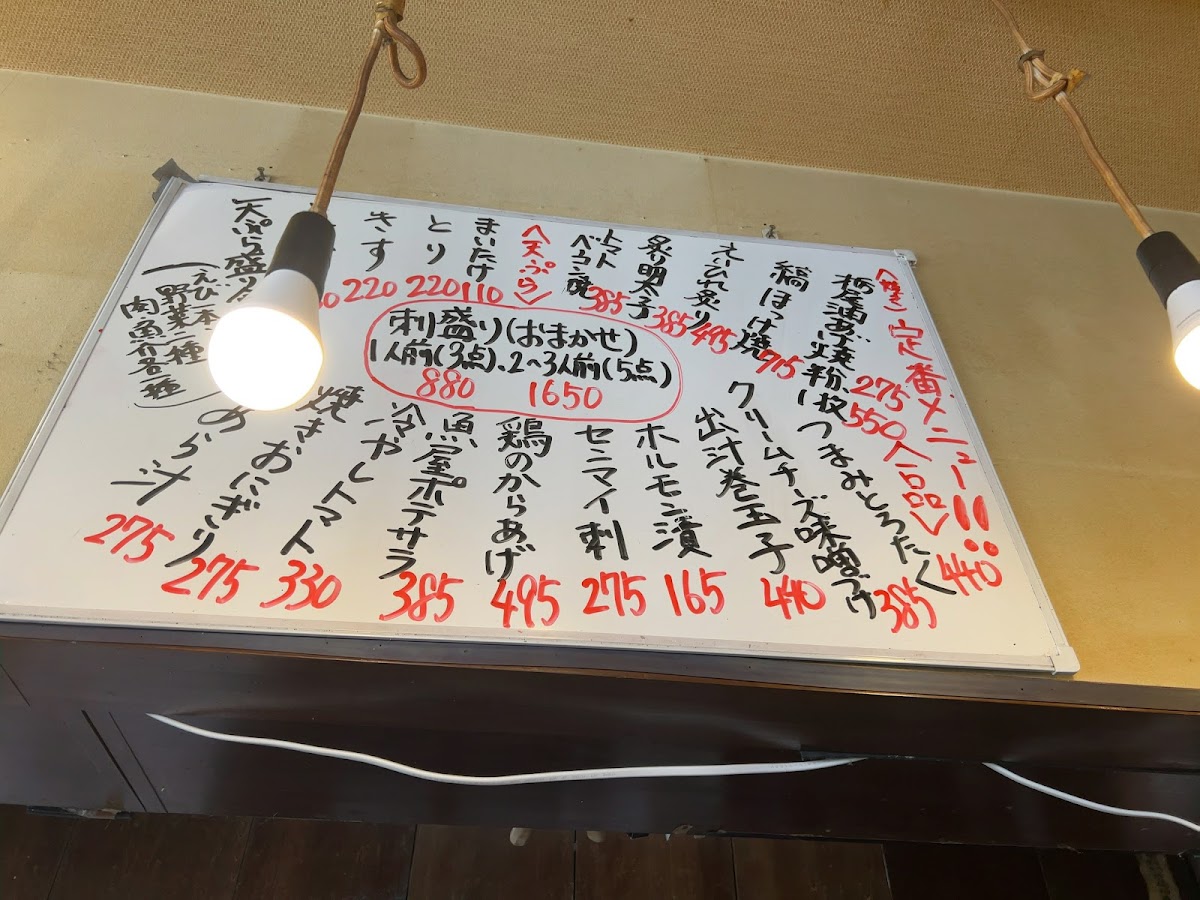 定番メニュー!!
<焼き>
栃尾油あげ焼
275
550
縞ほっけ焼 715
えいひれ炙り 495
炙り明太子 385
トマト
ベーコン焼 385
<天ぷら>
まいたけ 110
とり 220
きす 220
天ぷら盛り
野菜一種
刺盛り(おまかせ)
1人前(3点)、2〜3人前(5点)
880 1650
<一品>
つまみとろたく 440
クリームチーズ味噌づけ 385
出汁巻玉子 440
ホルモン漬 165
センマイ刺 275
鶏のからあげ 495
魚屋ポテサラ 385
冷やしトマト 330
焼きおにぎり 275
あら汁 275